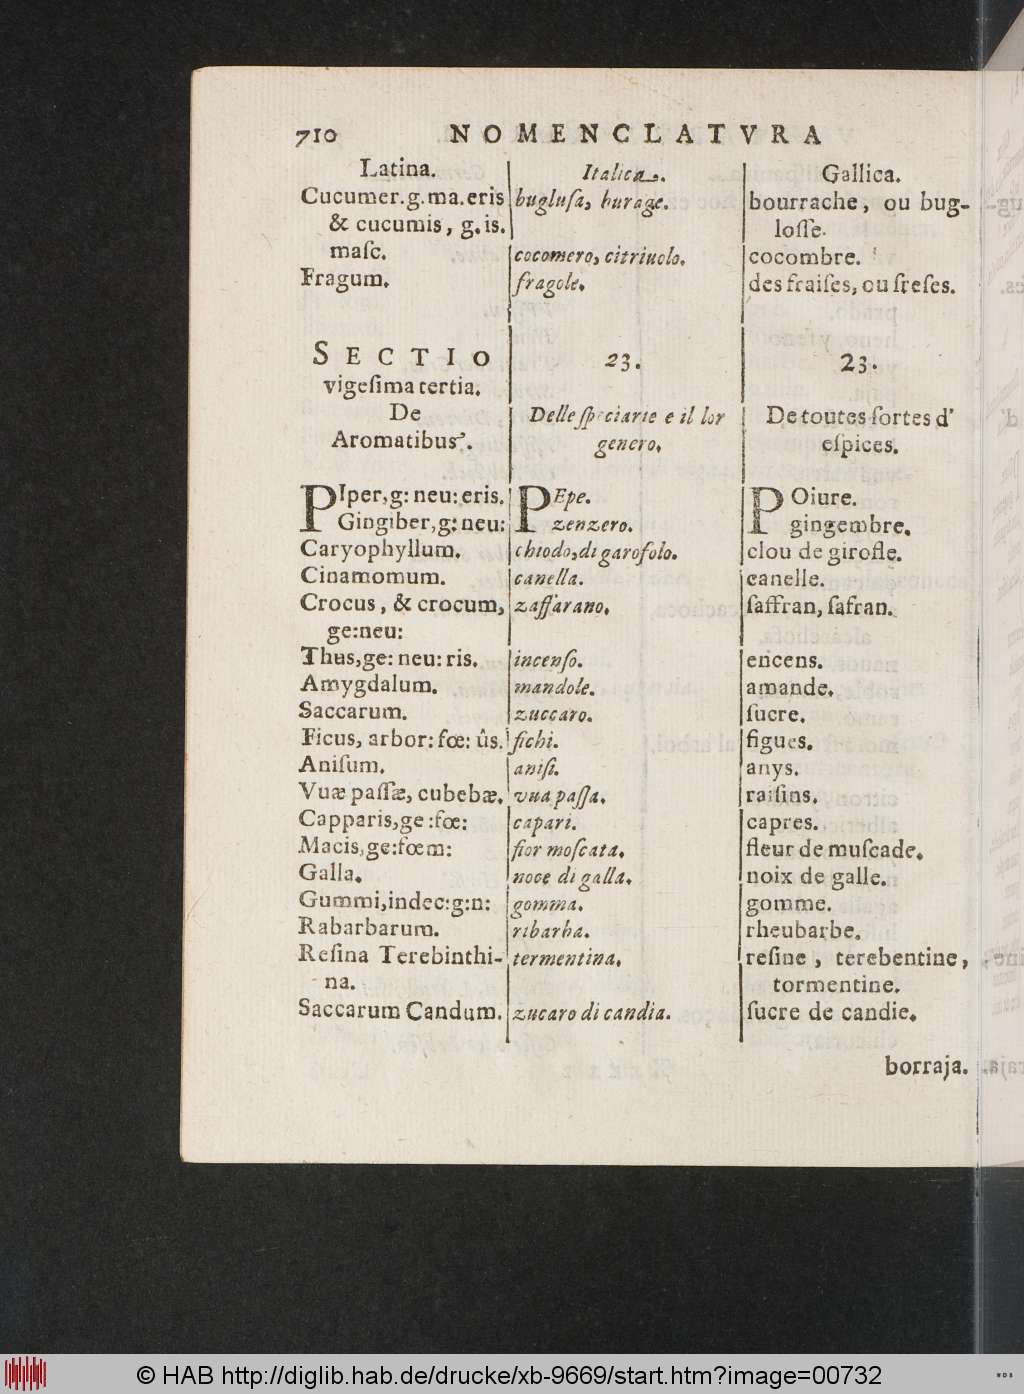 710 NOMENCLATVRA
Latina. Italica. Gallica.
Cucumer.g.ma.eris buglusa, burage. bourrache, ou bug-
& cucumis, g.is. losse.
masc. cocomero, citriuolo. cocombre.
Fragum. fragole. des fraises, ou freses.
SECTIO 23. 23.
vigesima tertia.
De Delle speciarie e il lor De toutes sortes d'
Aromatibus. genero. espices.
PIper,g: neu: eris. PEpe. POiure.
Gingiber,g: neu: zenzero. gingembre.
Caryophyllum. chiodo,di garofolo. clou de girofle.
Cinamomum. canella. canelle.
Crocus, & crocum, zaffarano. saffran, safran.
ge:neu:
Thus,ge: neu: ris. incenso. encens.
Amygdalum. mandole. amande.
Saccarum. zuccaro. sucre.
Ficus, arbor: fœ: ûs. fichi. figues.
Anisum. anisi. anys.
Vuæ passæ, cubebæ. vua passa. raisins.
Capparis,ge:fœ: capari. capres.
Macis,ge:fœm: fior moscata. fleur de muscade.
Galla. noce di galla. noix de galle.
Gummi,indec:g:n: gomma. gomme.
Rabarbarum. ribarba. rheubarbe.
Resina Terebinthi- termentina. resine, terebentine,
na. tormentine.
Saccarum Candum. zucaro di candia. sucre de candie.
borraja.
© HAB http://diglib.hab.de/drucke/xb-9669/start.htm?image=00732